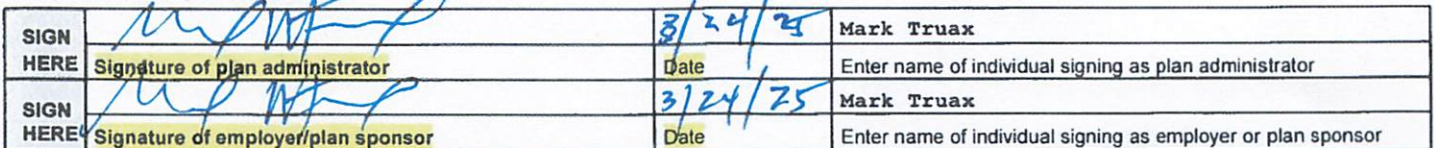 SIGN 3/24/25 Mark Truax
HERE Signature of plan administrator Date Enter name of individual signing as plan administrator
SIGN 3/24/25 Mark Truax
HERE Signature of employer/plan sponsor Date Enter name of individual signing as employer or plan sponsor